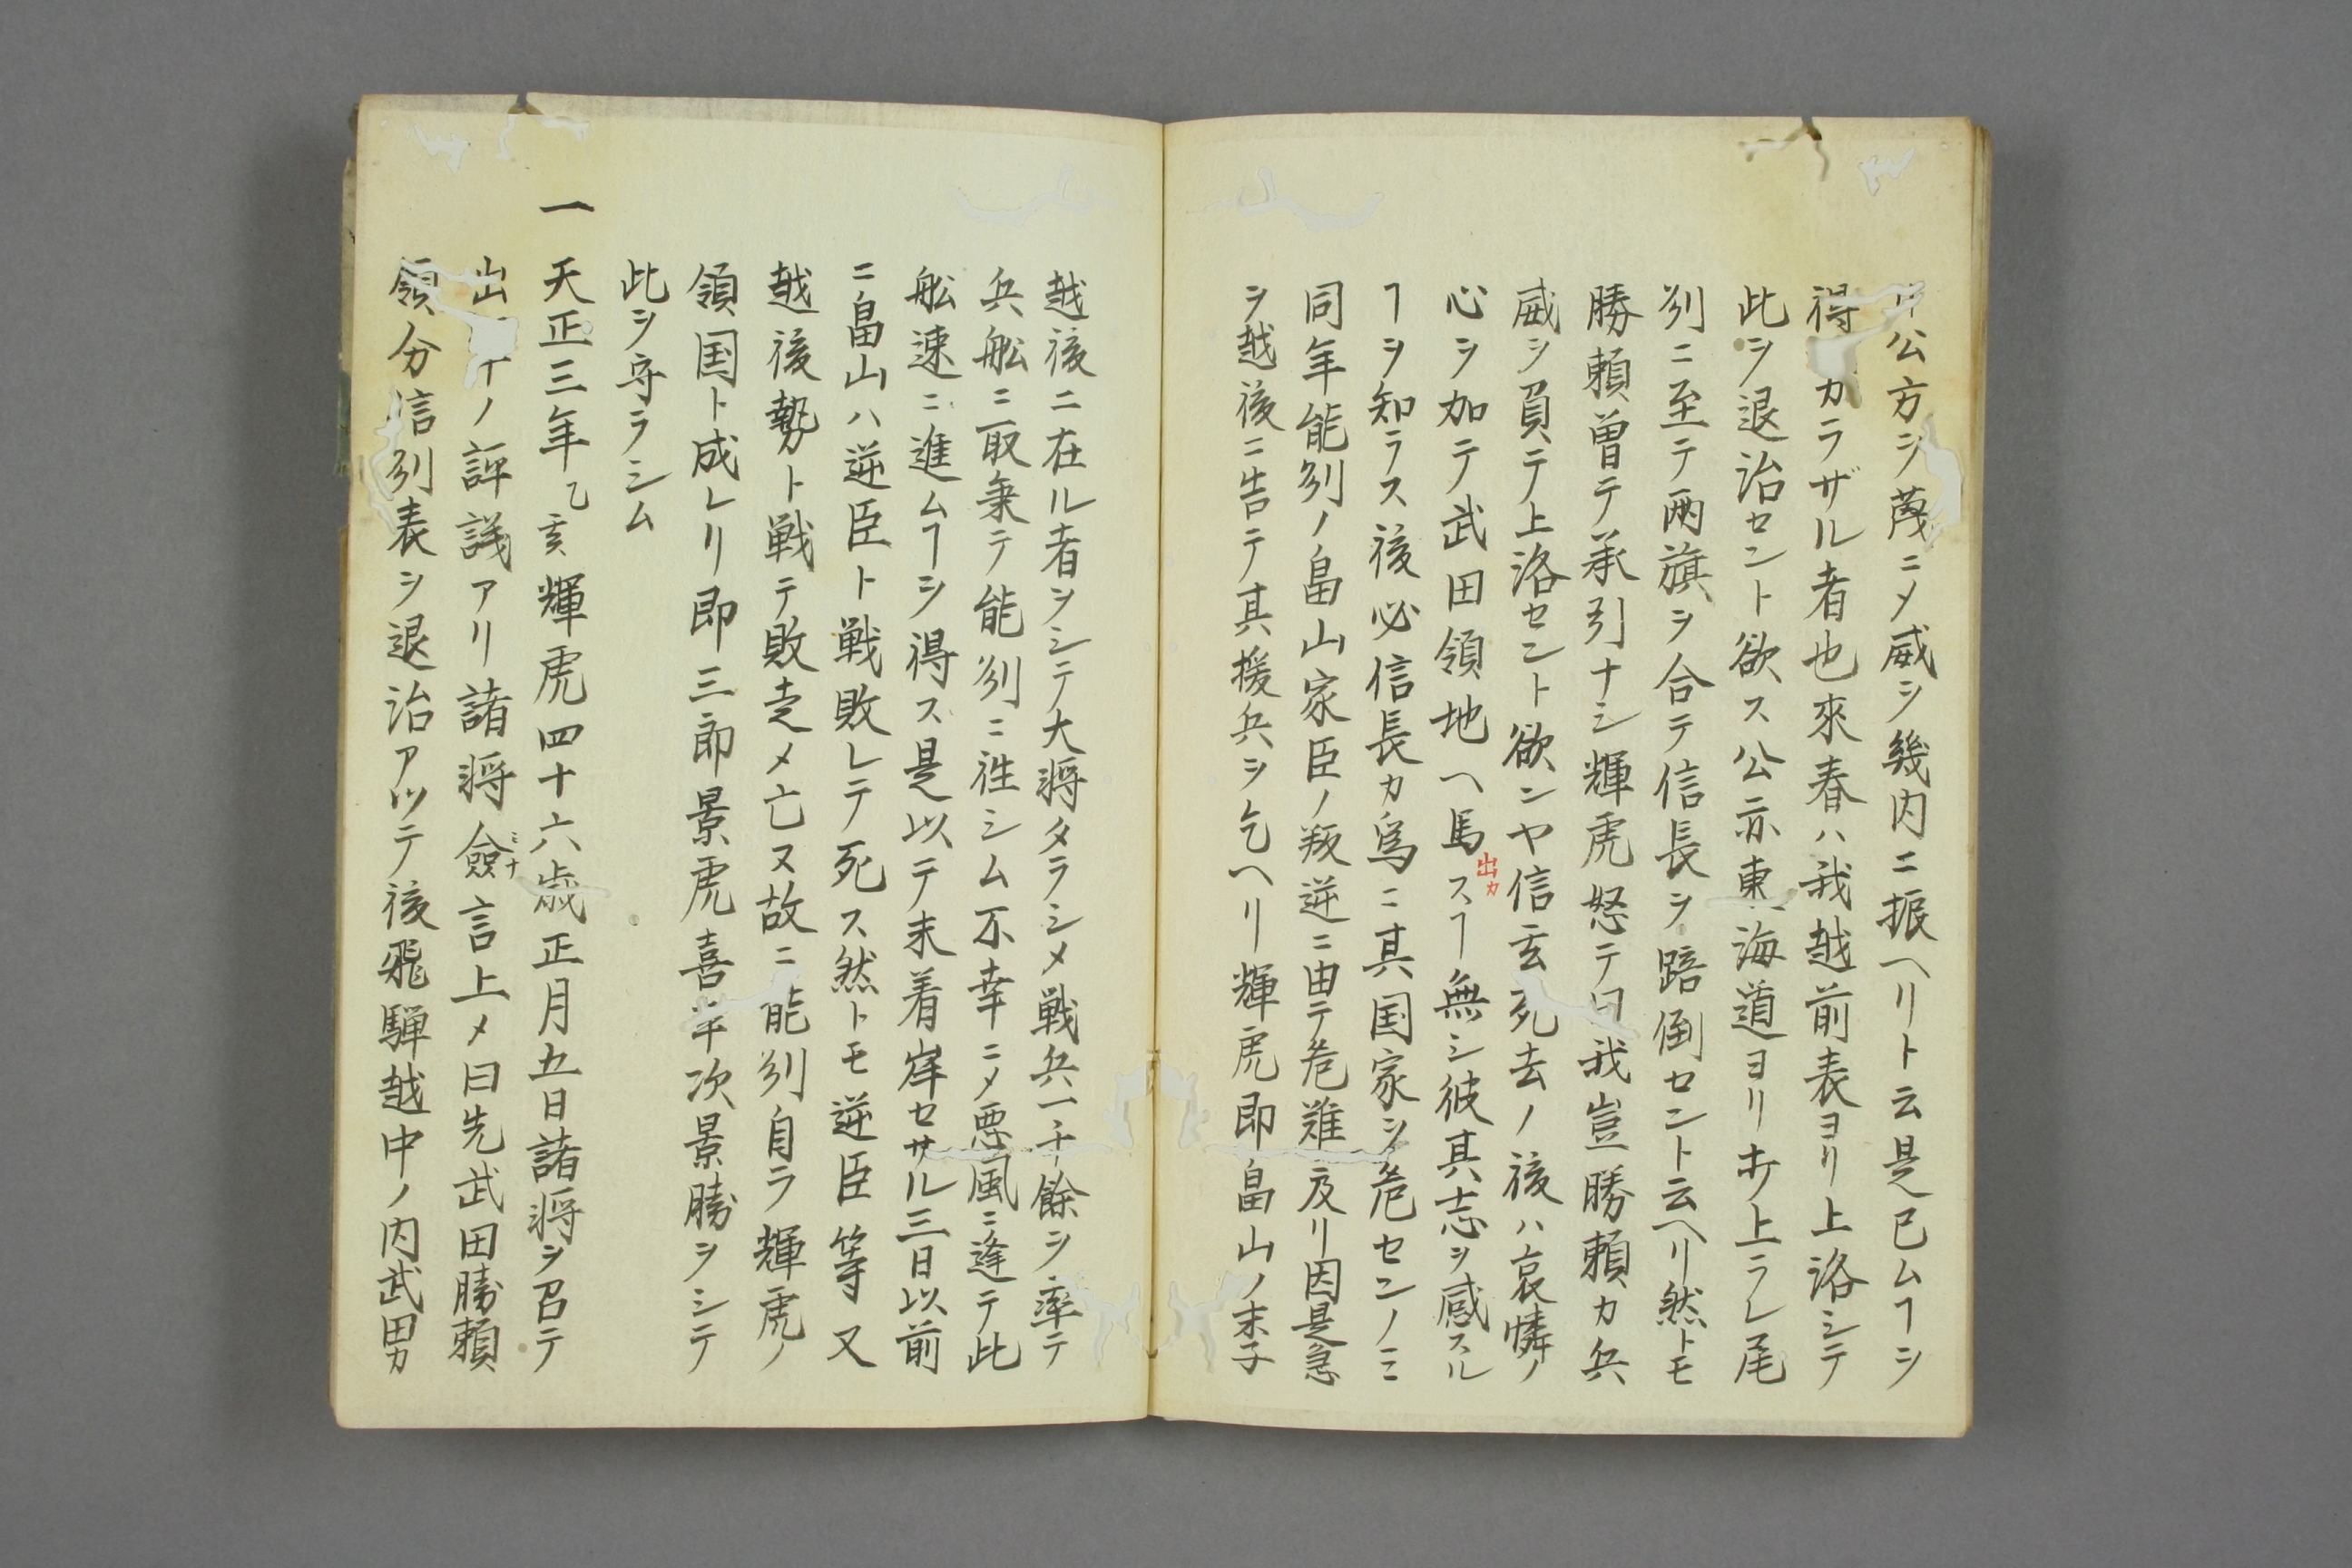 公方ヲ蔑ニメ威ヲ幾内ニ振ヘリト云是已ムヿヲ
得カラザル者也來春ハ我越前表ヨリ上洛シテ
此ヲ退治セント欲ス公亦東海道ヨリ打上ラレ尾
刕ニ至テ両旗ヲ合テ信長ヲ踣倒セント云ヘリ然トモ
勝頼曽テ承引ナシ輝虎怒テ曰我豈勝頼カ兵
威ヲ負テ上洛セント欲ンヤ信玄死去ノ後ハ哀憐ノ
心ヲ加テ武田領地ヘ馬スヿ無シ彼其志ヲ感スル
出カ
ヿヲ知ラス後必信長カ為ニ其国家ヲ危センノミ
同年能刕ノ畠山家臣ノ叛逆ニ由テ危難ニ及リ因是急
ヲ越後ニ告テ其援兵ヲ乞ヘリ輝虎即畠山ノ末子
越後ニ在ル者ヲシテ大将タラシメ戦兵一千餘ヲ率テ
兵舩ニ取乗テ能刕ニ徃シム不幸ニメ悪風ニ逢テ此
舩速ニ進ムヿヲ得ス是以テ未着岸セサル三日以前
ニ畠山ハ逆臣ト戦敗レテ死ス然トモ逆臣等又
越後勢ト戦テ敗走メ亡ヌ故ニ能刕自ラ輝虎ノ
領国ト成レリ即三郎景虎喜平次景勝ヲシテ
此ヲ守ラシム
一天正三年乙亥輝虎四十六歳正月五日諸将ヲ召テ
出ノ評議アリ諸将僉言上メ曰先武田勝頼
ミナ
領分信刕表ヲ退治アツテ後飛騨越中ノ内武田カ